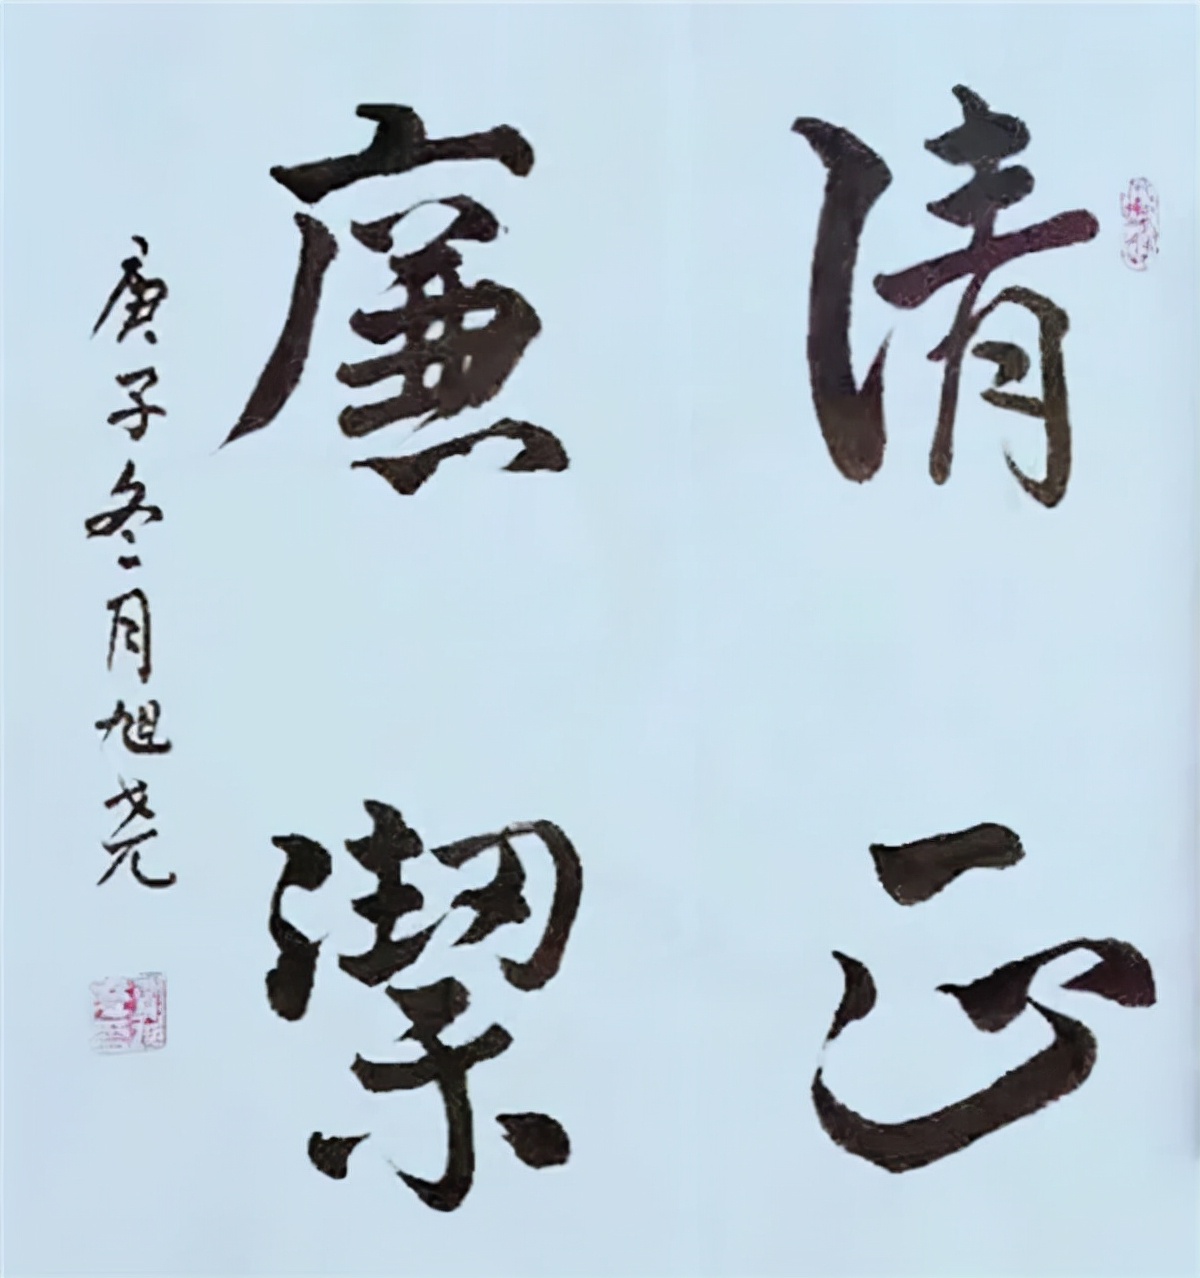 清正
廉潔
庚子冬月旭尧